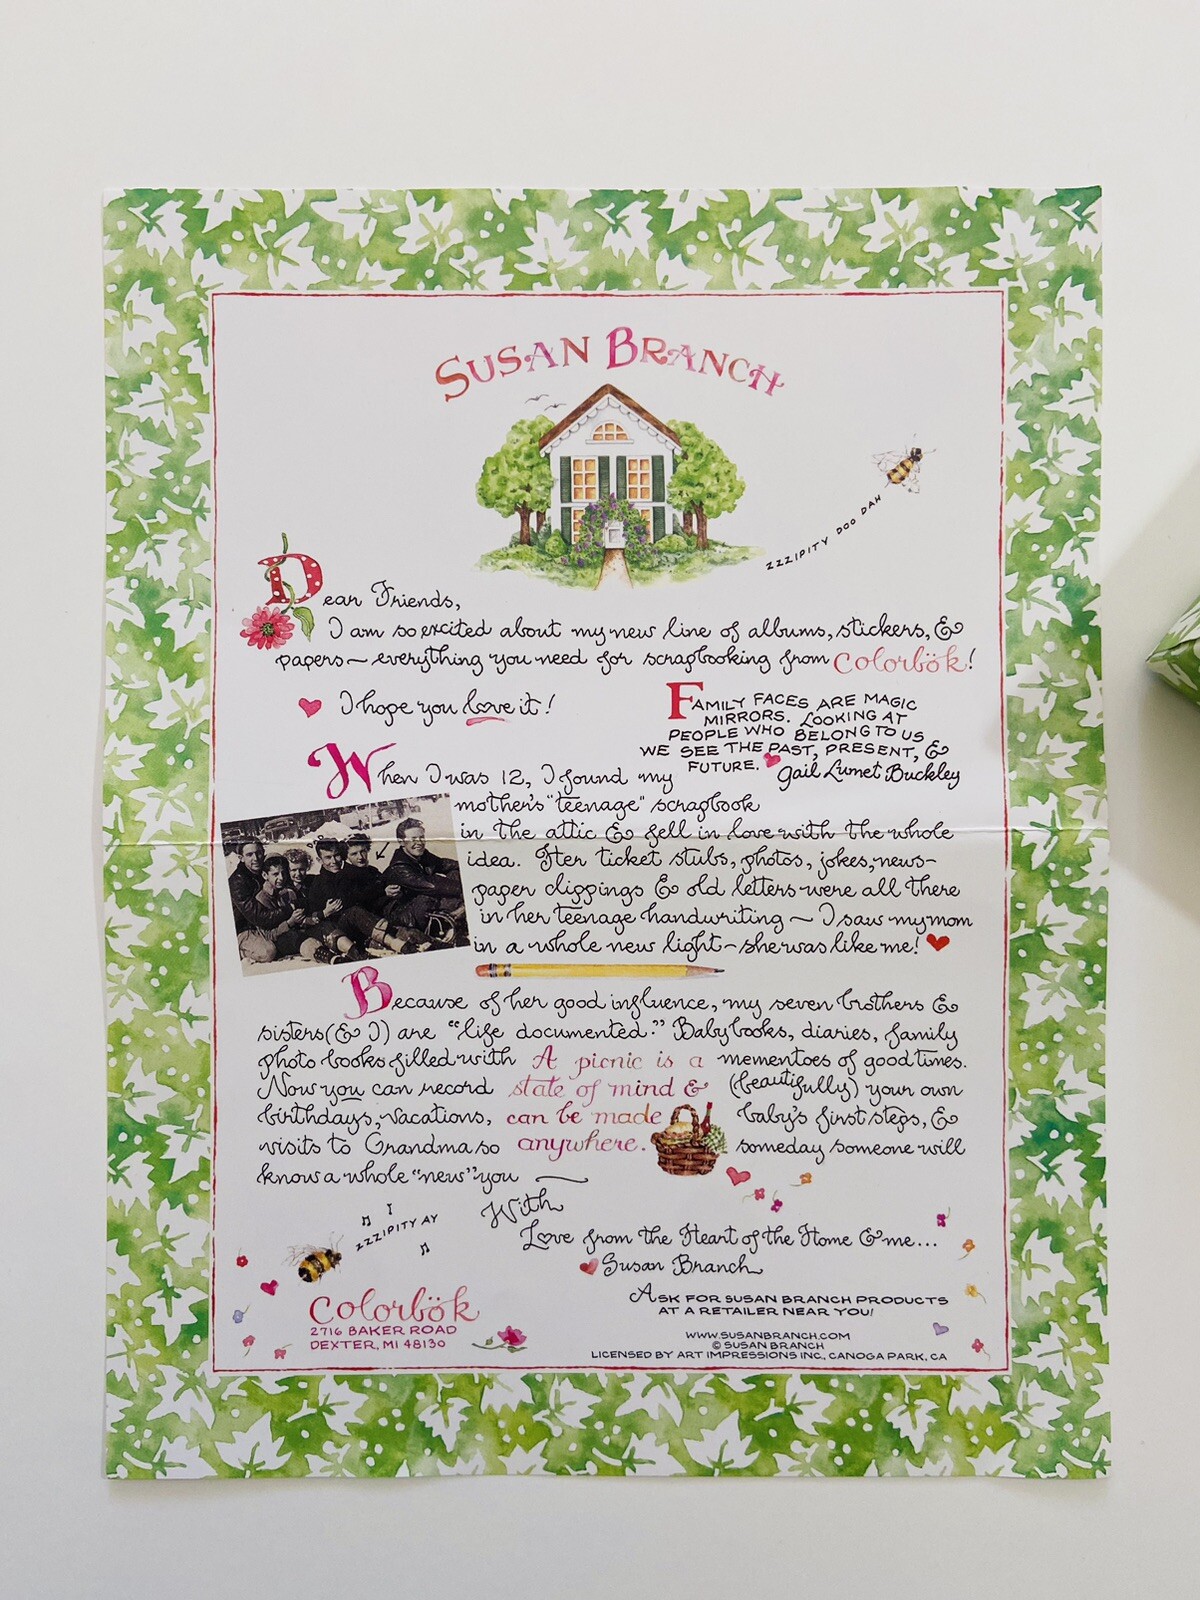 SUSAN BRANCH
ZZZIPITY DOO DAH
Dear Friends,
I am so excited about my new line of albums, stickers, &
papers~everything you need for scrapbooking from Colorbök!
I hope you love it!
FAMILY FACES ARE MAGIC
MIRRORS. LOOKING AT
PEOPLE WHO BELONG TO US
WE SEE THE PAST, PRESENT, &
FUTURE. Gail Lumet Buckley
When I was 12, I found my
mother's "teenage" scrapbook
in the attic & fell in love with the whole
idea. Her ticket stubs, photos, jokes, news-
paper clippings & old letters were all there
in her teenage handwriting ~ I saw my mom
in a whole new light~she was like me!
DAD
Because of her good influence, my seven brothers &
sisters (& I) are "life documented." Baby books, diaries, family
photo books filled with mementoes of good times.
Now you can record (beautifully) your own
birthdays, vacations, baby's first steps, &
visits to Grandma so someday someone will
know a whole "new" you ~
A picnic is a
state of mind &
can be made
anywhere.
With
Love from the Heart of the Home & me...
Susan Branch
ZZZIPITY AY
Colorbök
2716 BAKER ROAD
DEXTER, MI 48130
ASK FOR SUSAN BRANCH PRODUCTS
AT A RETAILER NEAR YOU!
WWW.SUSANBRANCH.COM
© SUSAN BRANCH
LICENSED BY ART IMPRESSIONS INC., CANOGA PARK, CA